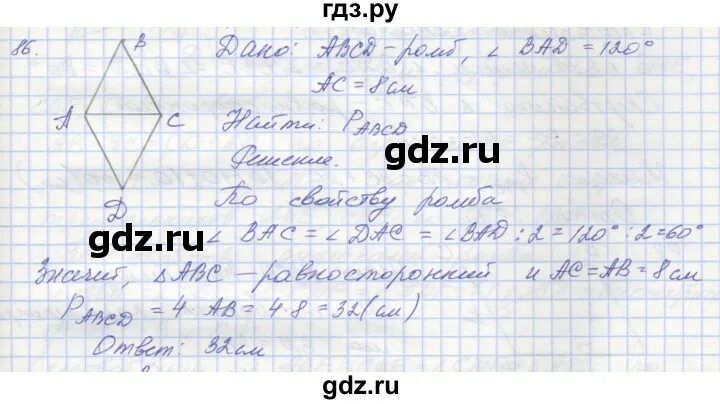 гдз.ру
86. B Дано: ABCD - ромб, ∠ BAD = 120°
AC = 8 см
A C Найти: P ABCD
gdz.ru
Решение.
D По свойству ромба
gdz.ru
∠ BAC = ∠ DAC = ∠ BAD : 2 = 120° : 2 = 60°
Значит, △ABC - равносторонний и AC = AB = 8 см
P ABCD = 4 · AB = 4 · 8 = 32 (см)
Ответ: 32 см
gdz.ru